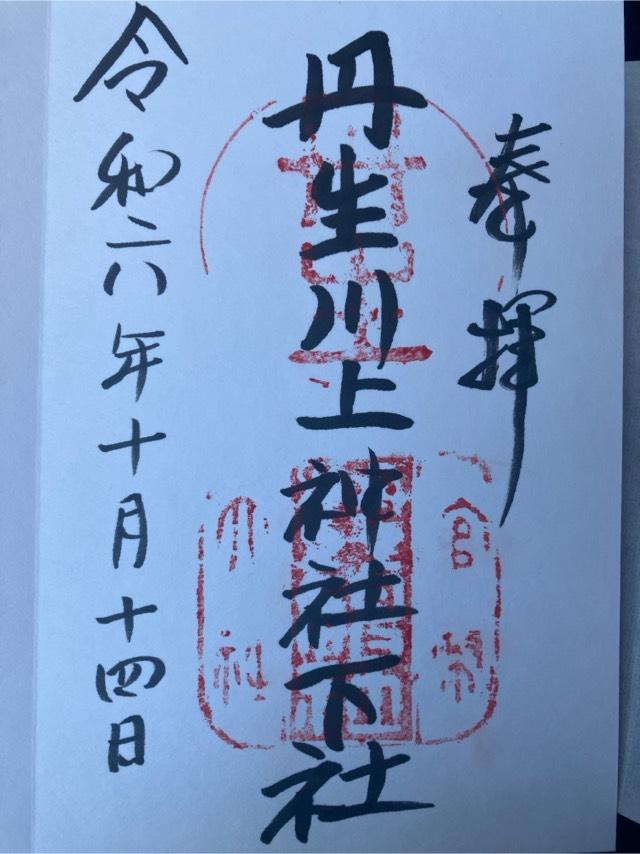 奉拝
丹生川上神社下社
令和六年十月十四日